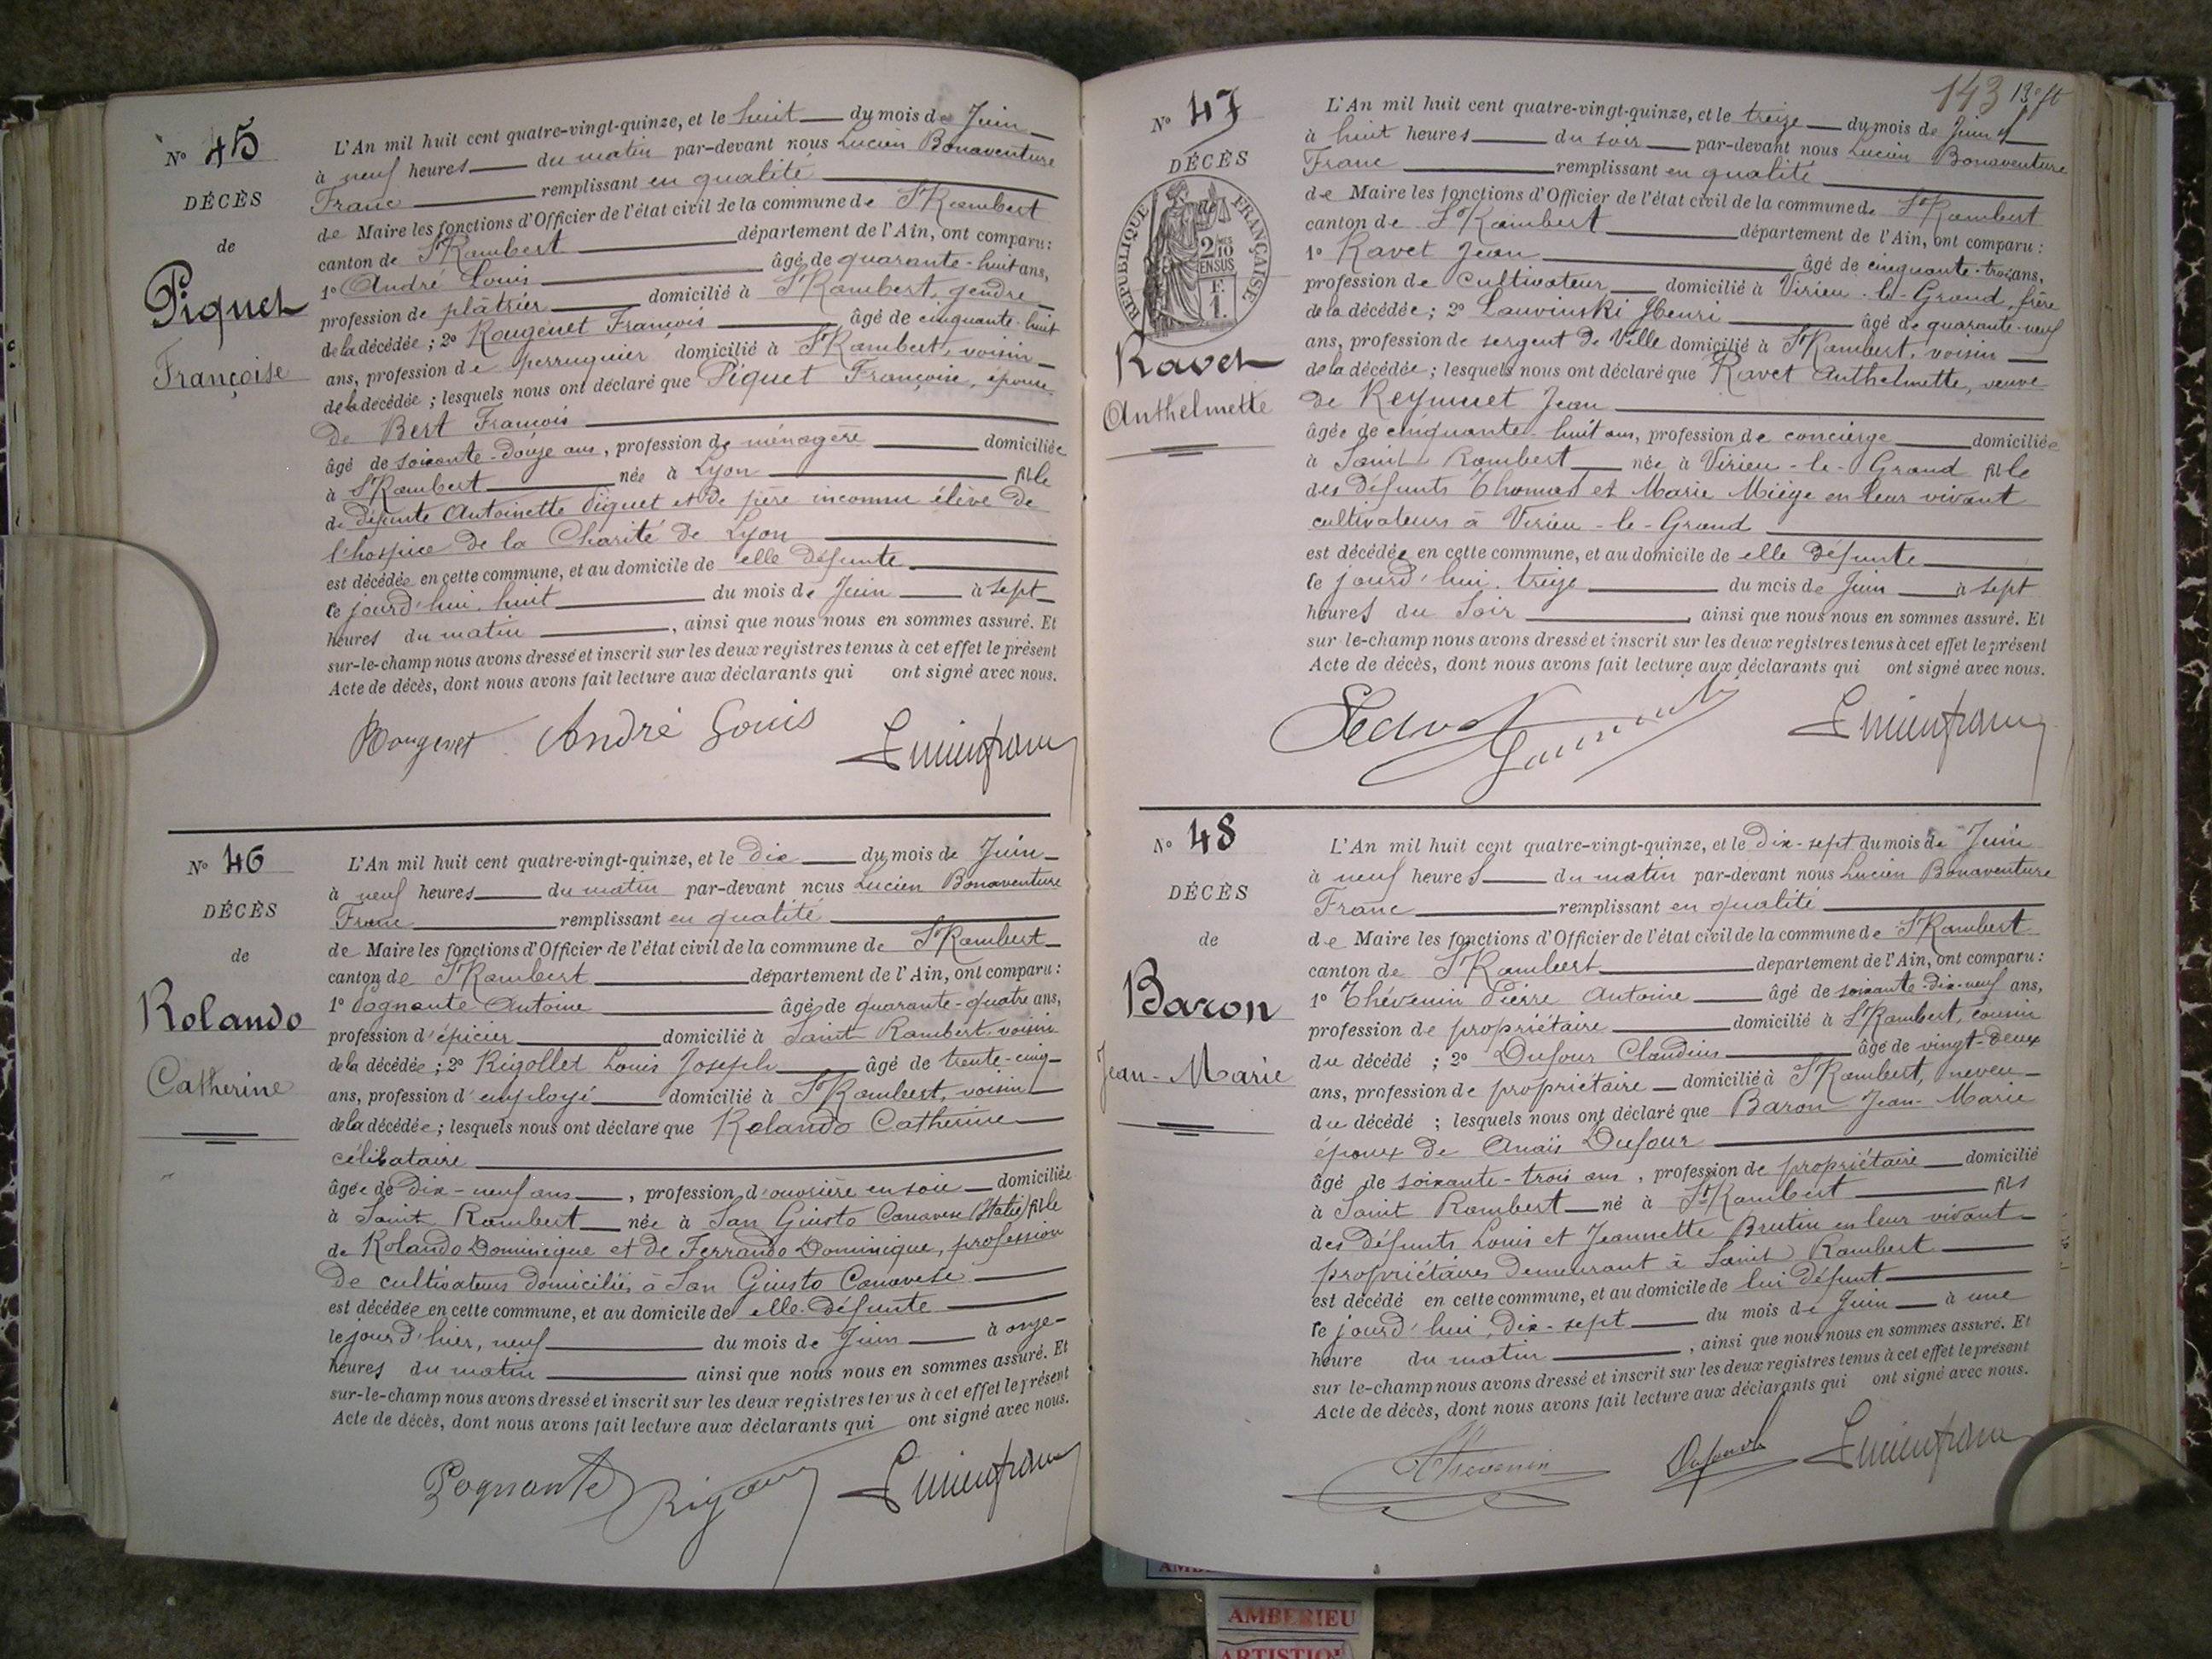 N° 45
DÉCÈS
de
Piquet
Françoise
L'An mil huit cent quatre-vingt-quinze, et le huit du mois de Juin
à neuf heures du matin par-devant nous Lucien Bonaventure
Franc remplissant en qualité
de Maire les fonctions d'Officier de l'état civil de la commune de St Rambert
canton de St Rambert département de l'Ain, ont comparu :
1° André Louis âgé de quarante-huit ans,
profession de plâtrier domicilié à St Rambert, gendre
de la décédée ; 2° Rougenet François âgé de cinquante-huit
ans, profession de perruquier domicilié à St Rambert, voisin
de la décédée ; lesquels nous ont déclaré que Piquet Françoise, épouse
de Bert François
âgé de soixante-douze ans, profession de ménagère domiciliée
à St Rambert née à Lyon fille
de défunte Antoinette Piquet et de père inconnu élève de
l'hospice de la Charité de Lyon
est décédée en cette commune, et au domicile de elle défunte
le jourd'hui huit du mois de Juin à sept
heures du matin, ainsi que nous nous en sommes assuré. Et
sur-le-champ nous avons dressé et inscrit sur les deux registres tenus à cet effet le présent
Acte de décès, dont nous avons fait lecture aux déclarants qui ont signé avec nous.
Rougenet André Louis Lucien franc
N° 46
DÉCÈS
de
Rolando
Catherine
L'An mil huit cent quatre-vingt-quinze, et le dix du mois de Juin
à neuf heures du matin par-devant nous Lucien Bonaventure
Franc remplissant en qualité
de Maire les fonctions d'Officier de l'état civil de la commune de St Rambert
canton de St Rambert département de l'Ain, ont comparu :
1° Pognante Antoine âgé de quarante-quatre ans,
profession d'épicier domicilié à Saint Rambert, voisin
de la décédée ; 2° Rigollet Louis Joseph âgé de trente-cinq
ans, profession d'employé domicilié à St Rambert, voisin
de la décédée ; lesquels nous ont déclaré que Rolando Catherine
célibataire
âgée de dix-neuf ans, profession d'ouvrière en soie domiciliée
à Saint Rambert née à San Giusto Canavese (Italie) fille
de Rolando Dominique et de Ferrando Dominique, profession
de cultivateurs domiciliés à San Giusto Canavese
est décédée en cette commune, et au domicile de elle défunte
le jour d'hier, neuf du mois de Juin à onze
heures du matin ainsi que nous nous en sommes assuré. Et
sur-le-champ nous avons dressé et inscrit sur les deux registres tenus à cet effet le présent
Acte de décès, dont nous avons fait lecture aux déclarants qui ont signé avec nous.
Pognante Lucien franc
143 13e ft
N° 47
DÉCÈS
de
RÉPUBLIQUE FRANÇAISE
2/10 EN SUS
F. 1.
Ravet
Anthelmette
L'An mil huit cent quatre-vingt-quinze, et le treize du mois de Juin
à huit heures du soir par-devant nous Lucien Bonaventure
Franc remplissant en qualité
de Maire les fonctions d'Officier de l'état civil de la commune de St Rambert
canton de St Rambert département de l'Ain, ont comparu :
1° Ravet Jean âgé de cinquante-trois ans,
profession de cultivateur domicilié à Virieu-le-Grand, frère
de la décédée ; 2° Louvinski Henri âgé de quarante-neuf
ans, profession de sergent de Ville domicilié à St Rambert, voisin
de la décédée ; lesquels nous ont déclaré que Ravet Anthelmette, veuve
de Reymuet Jean
âgée de cinquante-huit ans, profession de concierge domiciliée
à Saint Rambert née à Virieu-le-Grand fille
des défunts Thomas et Marie Miège en leur vivant
cultivateurs à Virieu-le-Grand
est décédée en cette commune, et au domicile de elle défunte
le jourd'hui treize du mois de Juin à sept
heures du soir, ainsi que nous nous en sommes assuré. Et
sur-le-champ nous avons dressé et inscrit sur les deux registres tenus à cet effet le présent
Acte de décès, dont nous avons fait lecture aux déclarants qui ont signé avec nous.
Lucien franc
N° 48
DÉCÈS
de
Baron
Jean-Marie
L'An mil huit cent quatre-vingt-quinze, et le dix-sept du mois de Juin
à neuf heures du matin par-devant nous Lucien Bonaventure
Franc remplissant en qualité
de Maire les fonctions d'Officier de l'état civil de la commune de St Rambert
canton de St Rambert département de l'Ain, ont comparu :
1° Thévenin Pierre Antoine âgé de soixante-dix-neuf ans,
profession de propriétaire domicilié à St Rambert, cousin
du décédé ; 2° Dufour Claudius âgé de vingt-deux
ans, profession de propriétaire domicilié à St Rambert, neveu
du décédé ; lesquels nous ont déclaré que Baron Jean-Marie
époux de Anaïs Dufour
âgé de soixante-trois ans, profession de propriétaire domicilié
à Saint Rambert né à St Rambert fils
des défunts Louis et Jeannette Brutin en leur vivant
propriétaires demeurant à Saint Rambert
est décédé en cette commune, et au domicile de lui défunt
le jourd'hui, dix-sept du mois de Juin à une
heure du matin, ainsi que nous nous en sommes assuré. Et
sur le-champ nous avons dressé et inscrit sur les deux registres tenus à cet effet le présent
Acte de décès, dont nous avons fait lecture aux déclarants qui ont signé avec nous.
Thévenin Dufour Lucien franc
AMBERIEU
ARTISTIQ